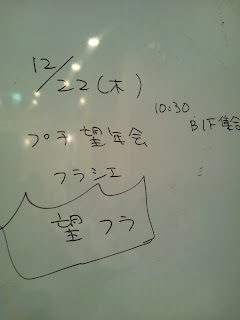 12/22(木)
10:30
B1F集合
プチ望年会
フラシエ
望フラ